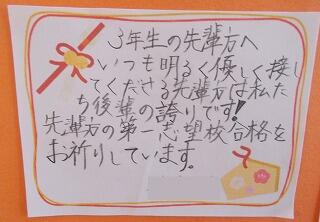 3年生の先輩方へ
いつも明るく優しく接し
てくださる先輩方は私た
ち後輩の誇りです!
先輩方の第一志望校合格を
お祈りしています。